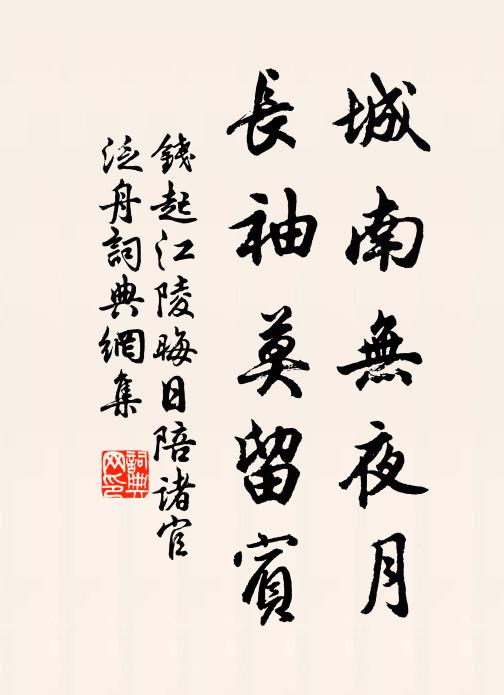 城南無夜月
長袖莫留賓
錢起江陵晦日陪諸官
泛舟詞典網集
詞典网印